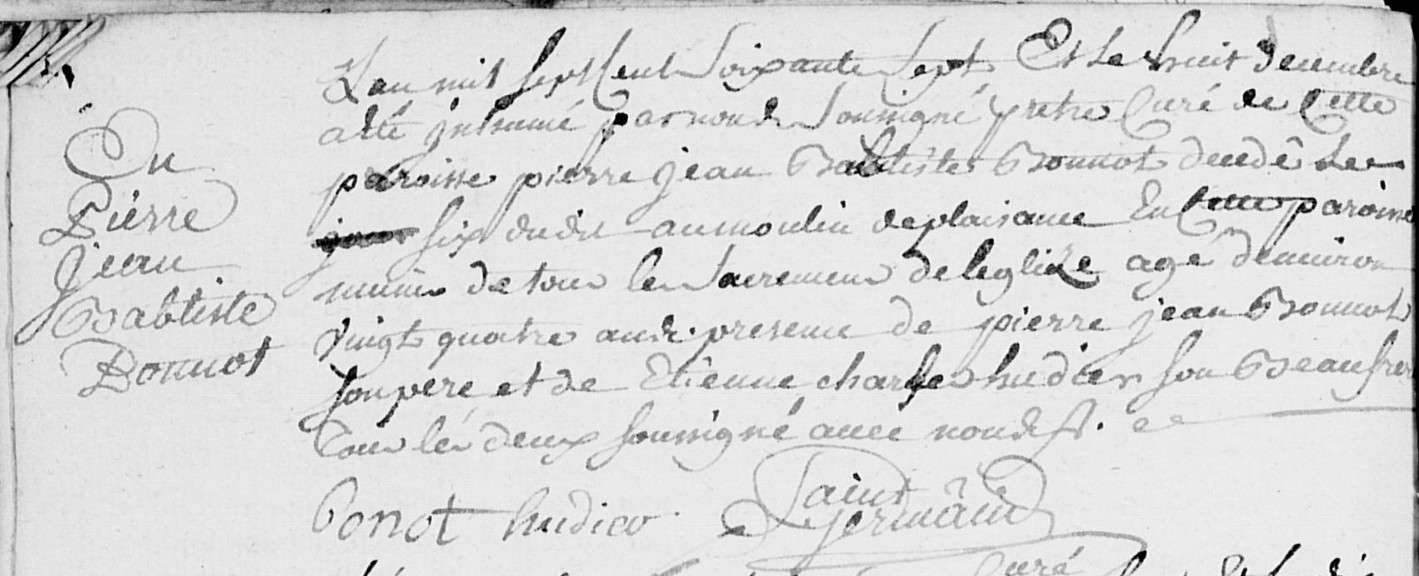 En
Pierre
Jean
Babtiste
Bonnot
L'an mil sept Cent Soixante Sept Et le huit decembre
a été inhumé par nous Soussigné pretre Curé de Cette
paroisse pierre jean Babtiste Bonnot decedé Le
jour six dudit au moulin de plaisance En Cette paroisse
munis de tous les Sacremens de leglize agé denviron
vingt quatre ans presence de pierre jean Bonnot
son pere et de Etienne charles hudier son Beaufrere
tous les deux soussigné avec nous
bonot hudier Saint
germain
Curé